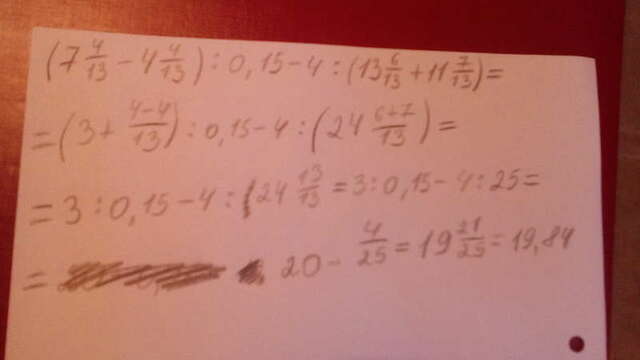 (7 4/13 - 4 4/13) : 0,15 - 4 : (13 6/13 + 11 7/13) =
= (3 + 4-4/13) : 0,15 - 4 : (24 6+7/13) =
= 3 : 0,15 - 4 : (24 13/13 = 3 : 0,15 - 4 : 25 =
= 20 - 4/25 = 19 21/25 = 19,84